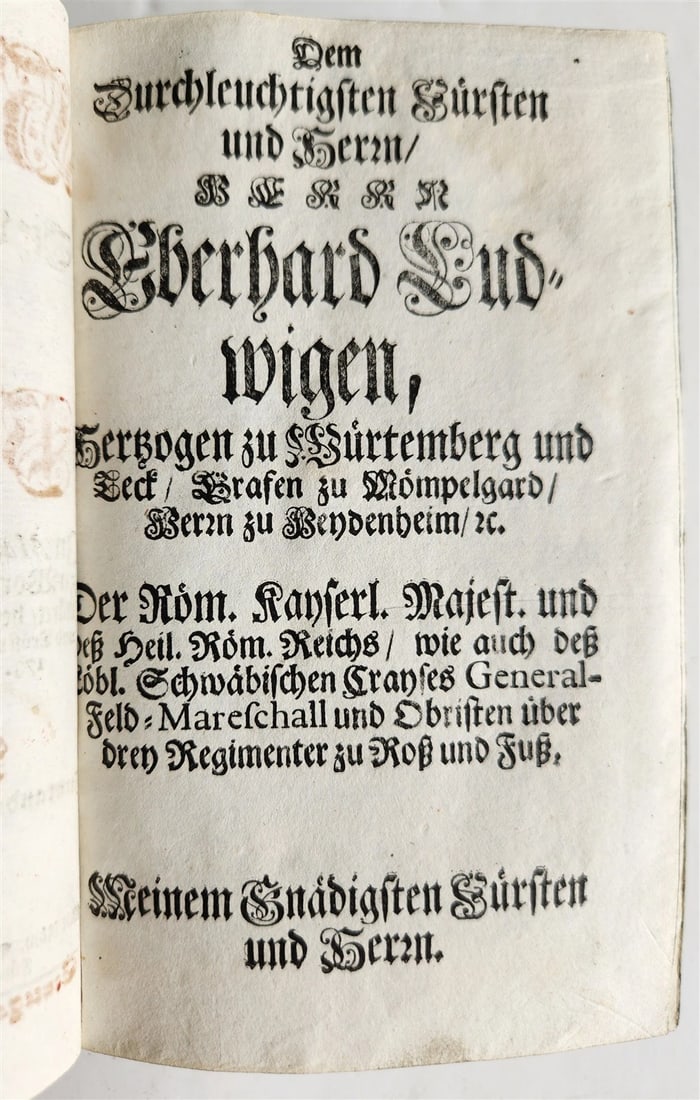 Dem
Durchleuchtigsten Fürsten
und Herrn/
HERRN
Eberhard Lud-
wigen,
Hertzogen zu Würtemberg und
Teck/ Grafen zu Mömpelgard/
Herrn zu Heydenheim/ ꝛc.
Der Röm. Kayserl. Majest. und
deß Heil. Röm. Reichs/ wie auch deß
Löbl. Schwäbischen Crayses General-
Feld-Mareschall und Obristen über
drey Regimenter zu Roß und Fuß.
Meinem Gnädigsten Fürsten
und Herrn.